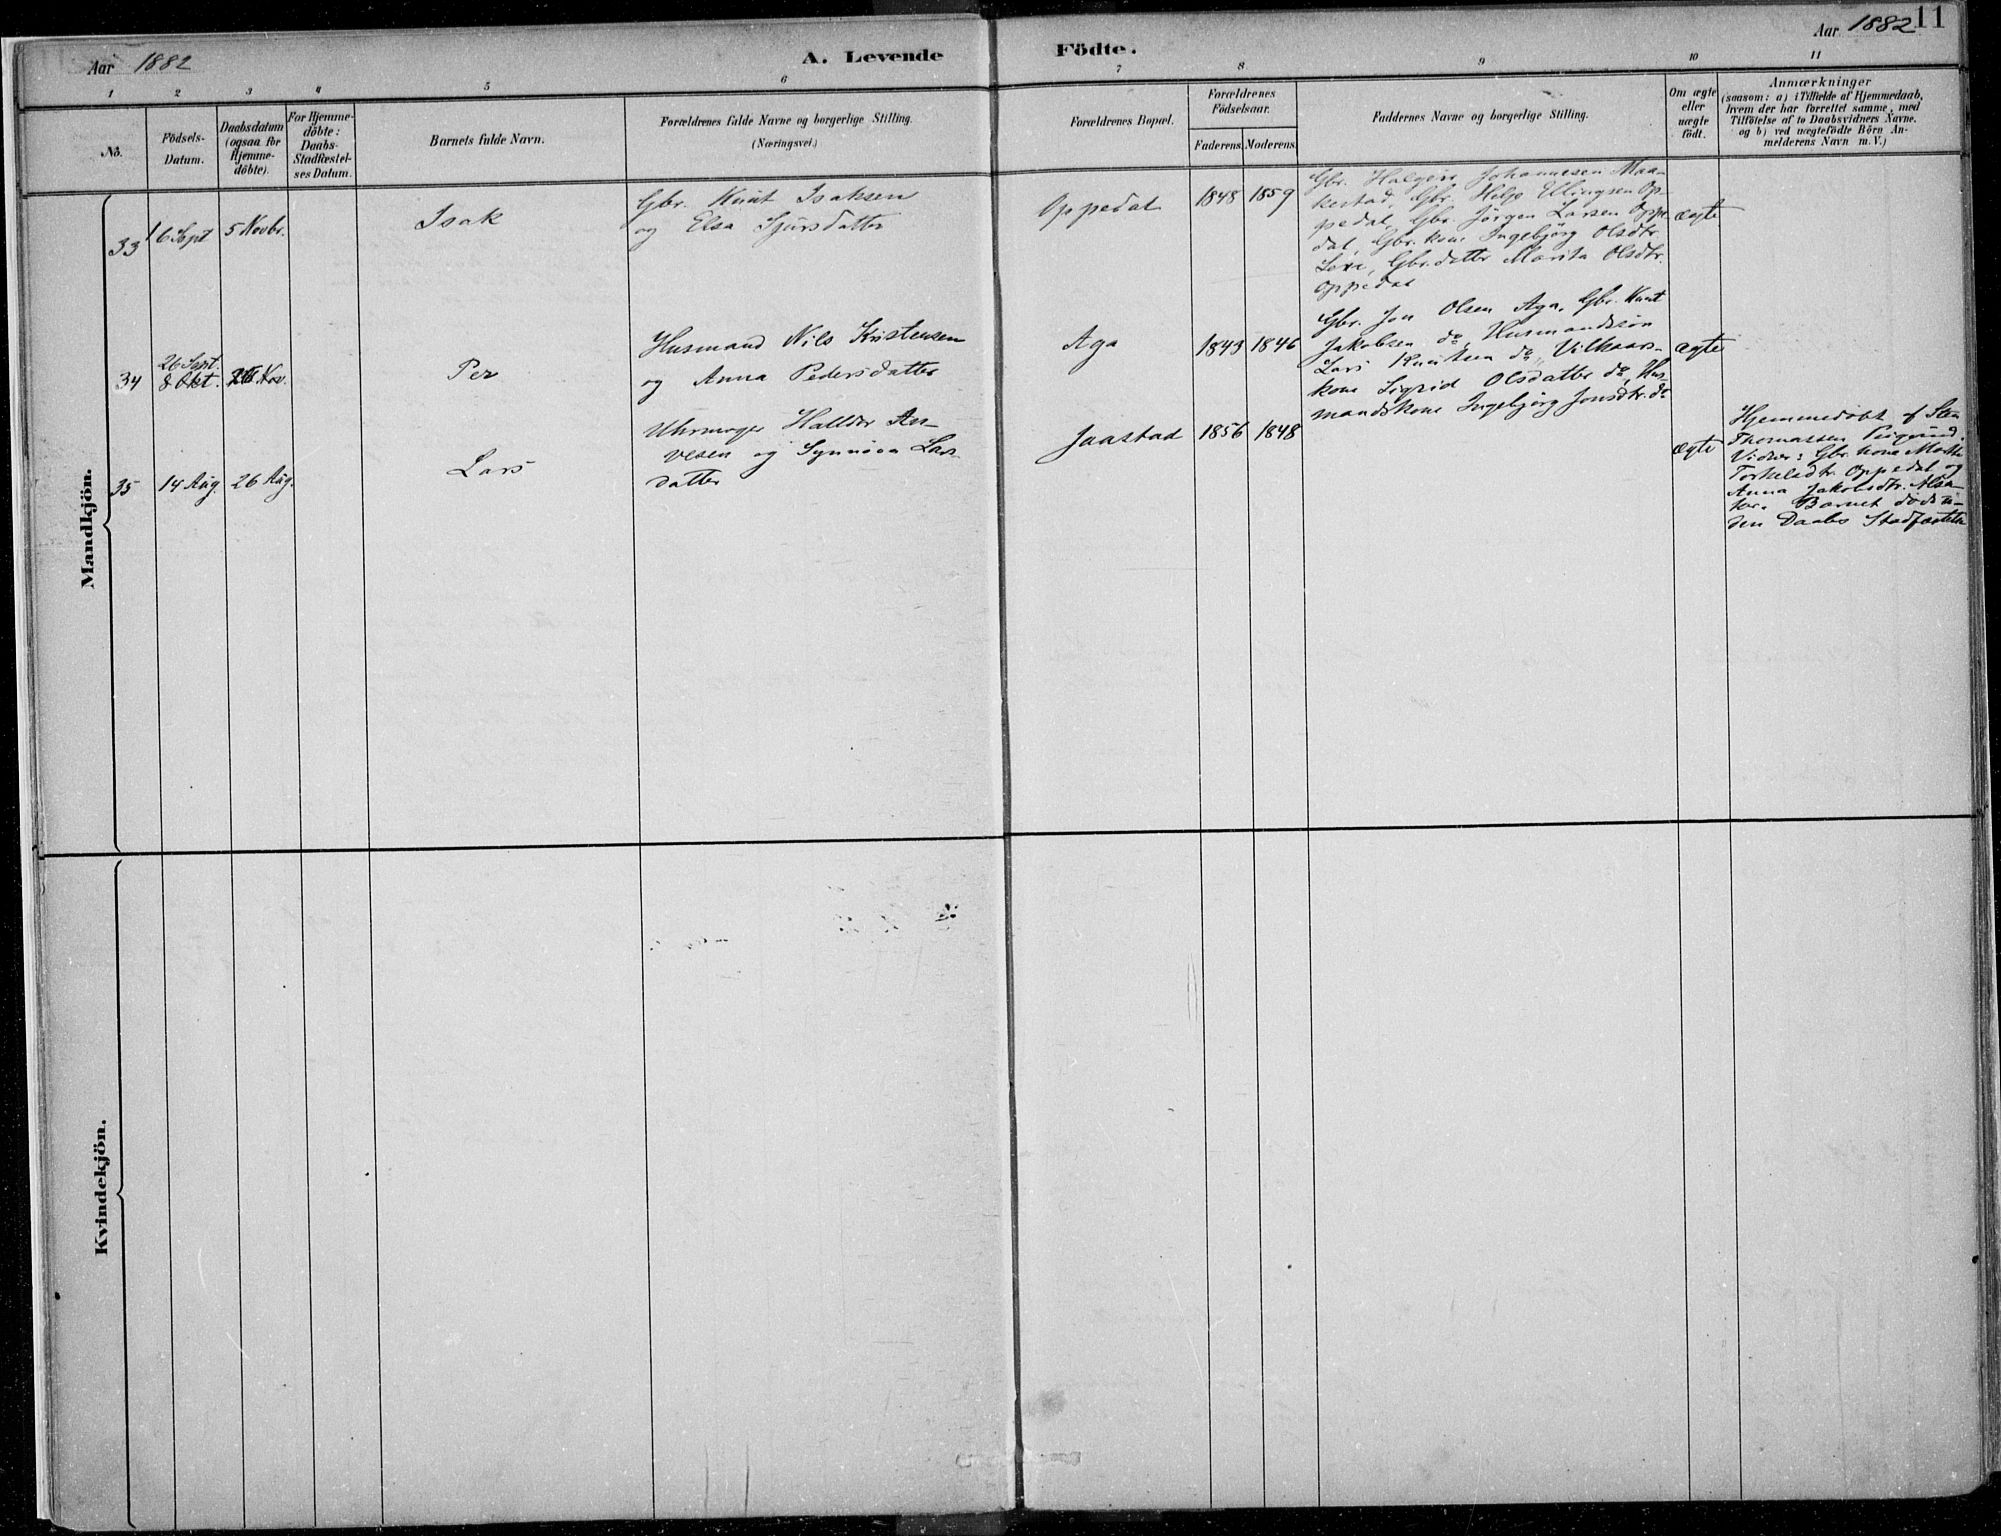 Aar 1882
A. Levende
Födte.
Aar 1882
11
1
2
3
4
5
6
7
8
9
10
11
No.
Födsels-
Datum.
Daabsdatum
(ogsaa for
Hjemme-
döbte).
For Hjemme-
döbte:
Daabs-
Stadfæstel-
ses Datum.
Barnets fulde Navn.
Forældrenes fulde Navne og borgerlige Stilling.
(Næringsvei.)
Forældrenes Bopæl.
Forældrenes
Födselsaar.
Faderens.
Moderens.
Faddernes Navne og borgerlige Stilling.
Om ægte
eller
uægte
födt.
Anmærkninger
(saasom: a) i Tilfælde af Hjemmedaab,
hvem der har forrettet samme, med
Tilföielse af to Daabsvidners Navne.
og b) ved uægtefödte Börn An-
melderens Navn m.V.)
Mandkjön.
33
16 Sept
5 Novbr.
Isak
Gbr. Knut Isaksen
og Elsa Sjursdatter
Oppedal
1848
1859
Gbr. Halgeir Johannesen Maa-
kestad, Gbr. Helje Ellingsen Op-
pedal, Gbr. Jörgen Larsen Oppe-
dal, Gbr. kone Ingebjörg Olsdtr.
Gbr. datter Marita Olsdtr.
Oppedal
ægte
34
26 Sept.
8 Okt.
Nov.
Per
Husmand Nils Kristensen
og Anna Pedersdatter
Aga
1843
1846
Gbr. Jon Olsen Aga, Gbr. Knut
Jakobsen do, Husmandssön
Lars Knutsen do, Vilkaars-
kone Sigrid Olsdatter do, Hus-
mandskone Ingebjörg Jonsdtr. do
ægte
35
14 Aug.
26 Aug.
Lars
Uhrmager Halldor An-
vesen og Synnöva Lars-
datter
Jaastad
1856
1848
ægte
Hjemmedöbt af Sten
Thomassen
Vidner: Gbr. kone Martha
Torkelsdtr. Oppedal og
Anna Jakobsdtr. Alsa-
ker. Barnet döde u-
den Daabs Stadfæstelse
Kvindekjön.